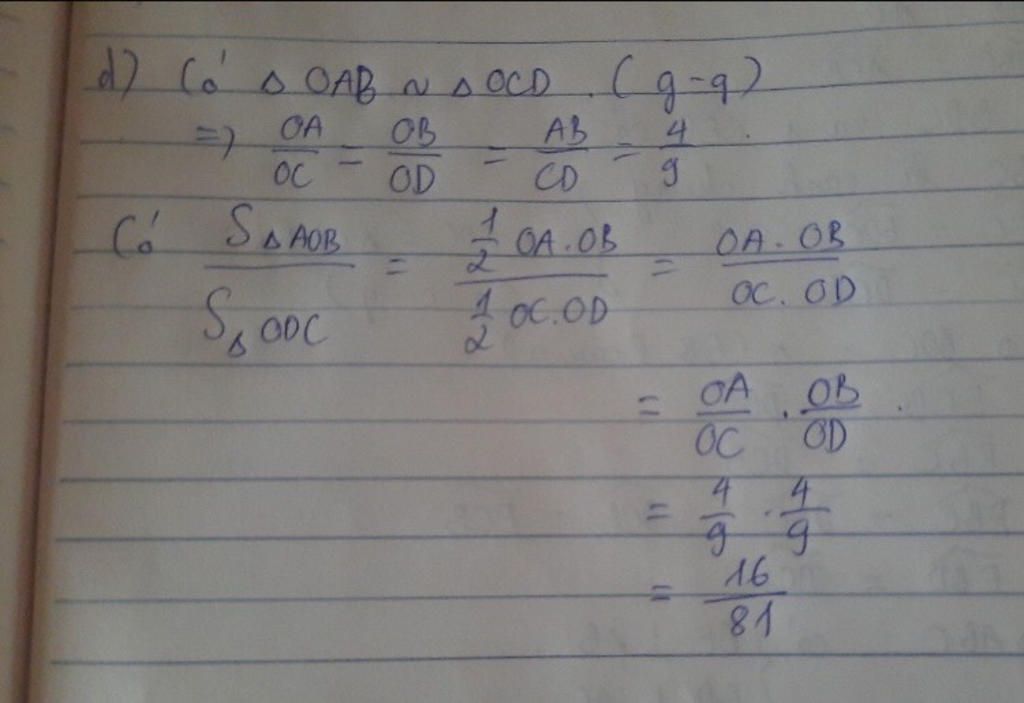 d) Có △ OAB ~ △ OCD . ( g-g )
=> OA/OC = OB/OD = AB/CD = 4/9
Có S△AOB / S△ODC = (1/2 OA.OB) / (1/2 OC.OD) = (OA.OB) / (OC.OD)
= OA/OC . OB/OD .
= 4/9 . 4/9
= 16/81